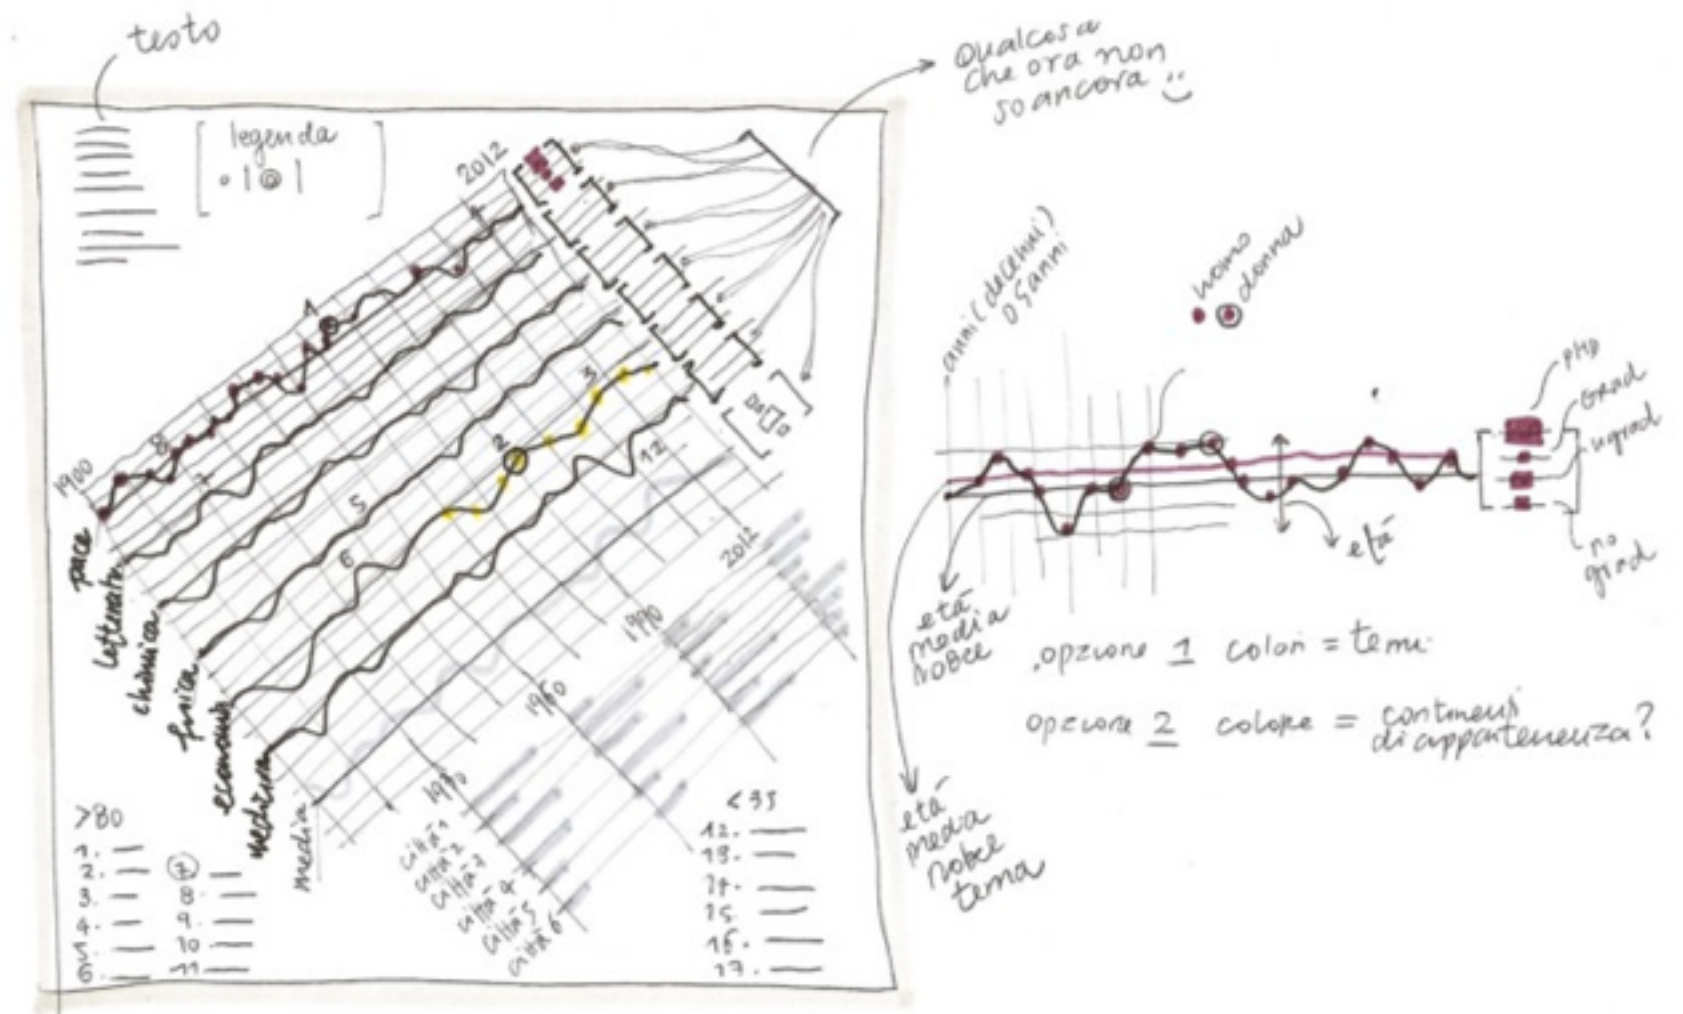 testo
Qualcosa
che ora non
so ancora
legenda
2012
1
8
1900
7
3
2
5
6
12
pace
letteratura
chimica
fisica
economia
medicina
media
2012
1990
1960
1930
città 1
città 2
città 3
città 4
città 5
città 6
>80
1.
2.
3.
4.
5.
6.
7
8.
9.
10.
11
<35
12.
13.
14.
15.
16.
17.
anni (decenni)
o 5 anni
uomo
donna
PHD
Grad
ugrad
no
grad
età
età
media
nobel
età
media
nobel
tema
opzione 1 colori = temi
opzione 2 colore = continenti
di appartenenza?